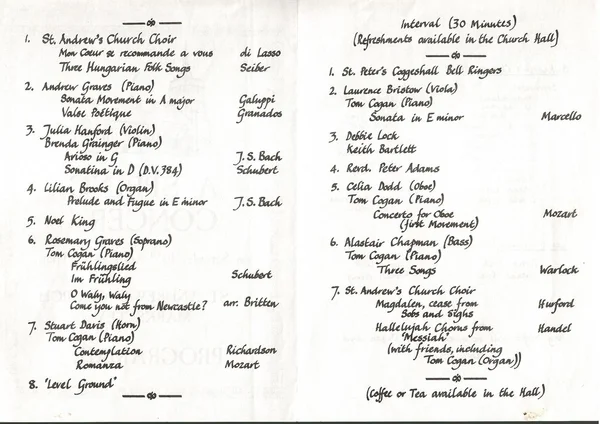 1. St. Andrew's Church Choir
Mon Coeur se recommande a vous di Lasso
Three Hungarian Folk Songs Seiber
2. Andrew Graves (Piano)
Sonata Movement in A major Galuppi
Valse Poétique Granados
3. Julia Hanford (Violin)
Brenda Grainger (Piano)
Arioso in G J.S. Bach
Sonatina in D (D.V.384) Schubert
4. Lilian Brooks (Organ)
Prelude and Fugue in E minor J.S. Bach
5. Noel King
6. Rosemary Graves (Soprano)
Tom Cogan (Piano)
Frühlingslied
Im Frühling Schubert
O Waly, Waly
Come you not from Newcastle? arr. Britten
7. Stuart Davis (Horn)
Tom Cogan (Piano)
Contemplation Richardson
Romanza Mozart
8. 'Level Ground'
Interval (30 Minutes)
(Refreshments available in the Church Hall)
1. St. Peter's Coggeshall Bell Ringers
2. Laurence Bristow (Viola)
Tom Cogan (Piano)
Sonata in E minor Marcello
3. Debbie Lock
Keith Bartlett
4. Revd. Peter Adams
5. Celia Dodd (Oboe)
Tom Cogan (Piano)
Concerto for Oboe Mozart
(first Movement)
6. Alastair Chapman (Bass)
Tom Cogan (Piano)
Three Songs Warlock
7. St. Andrew's Church Choir
Magdalen, cease from Hurford
Sobs and sighs
Hallelujah Chorus from Handel
"Messiah"
(with friends, including
Tom Cogan (Organ))
(Coffee or Tea available in the Hall)